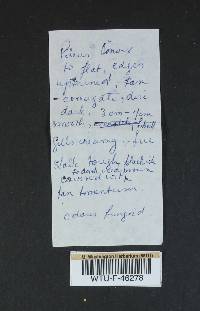 Pileus convex
to flat, edges
upturned, tan
corrugate, disc
dark, 3 cm - 7cm
smooth,
Gills creamy,
Stalk tough blackish
to dark
covered with
tan tomentum
odour fungoid
U. Washington Herbarium (WTU)
WTU-F-46278